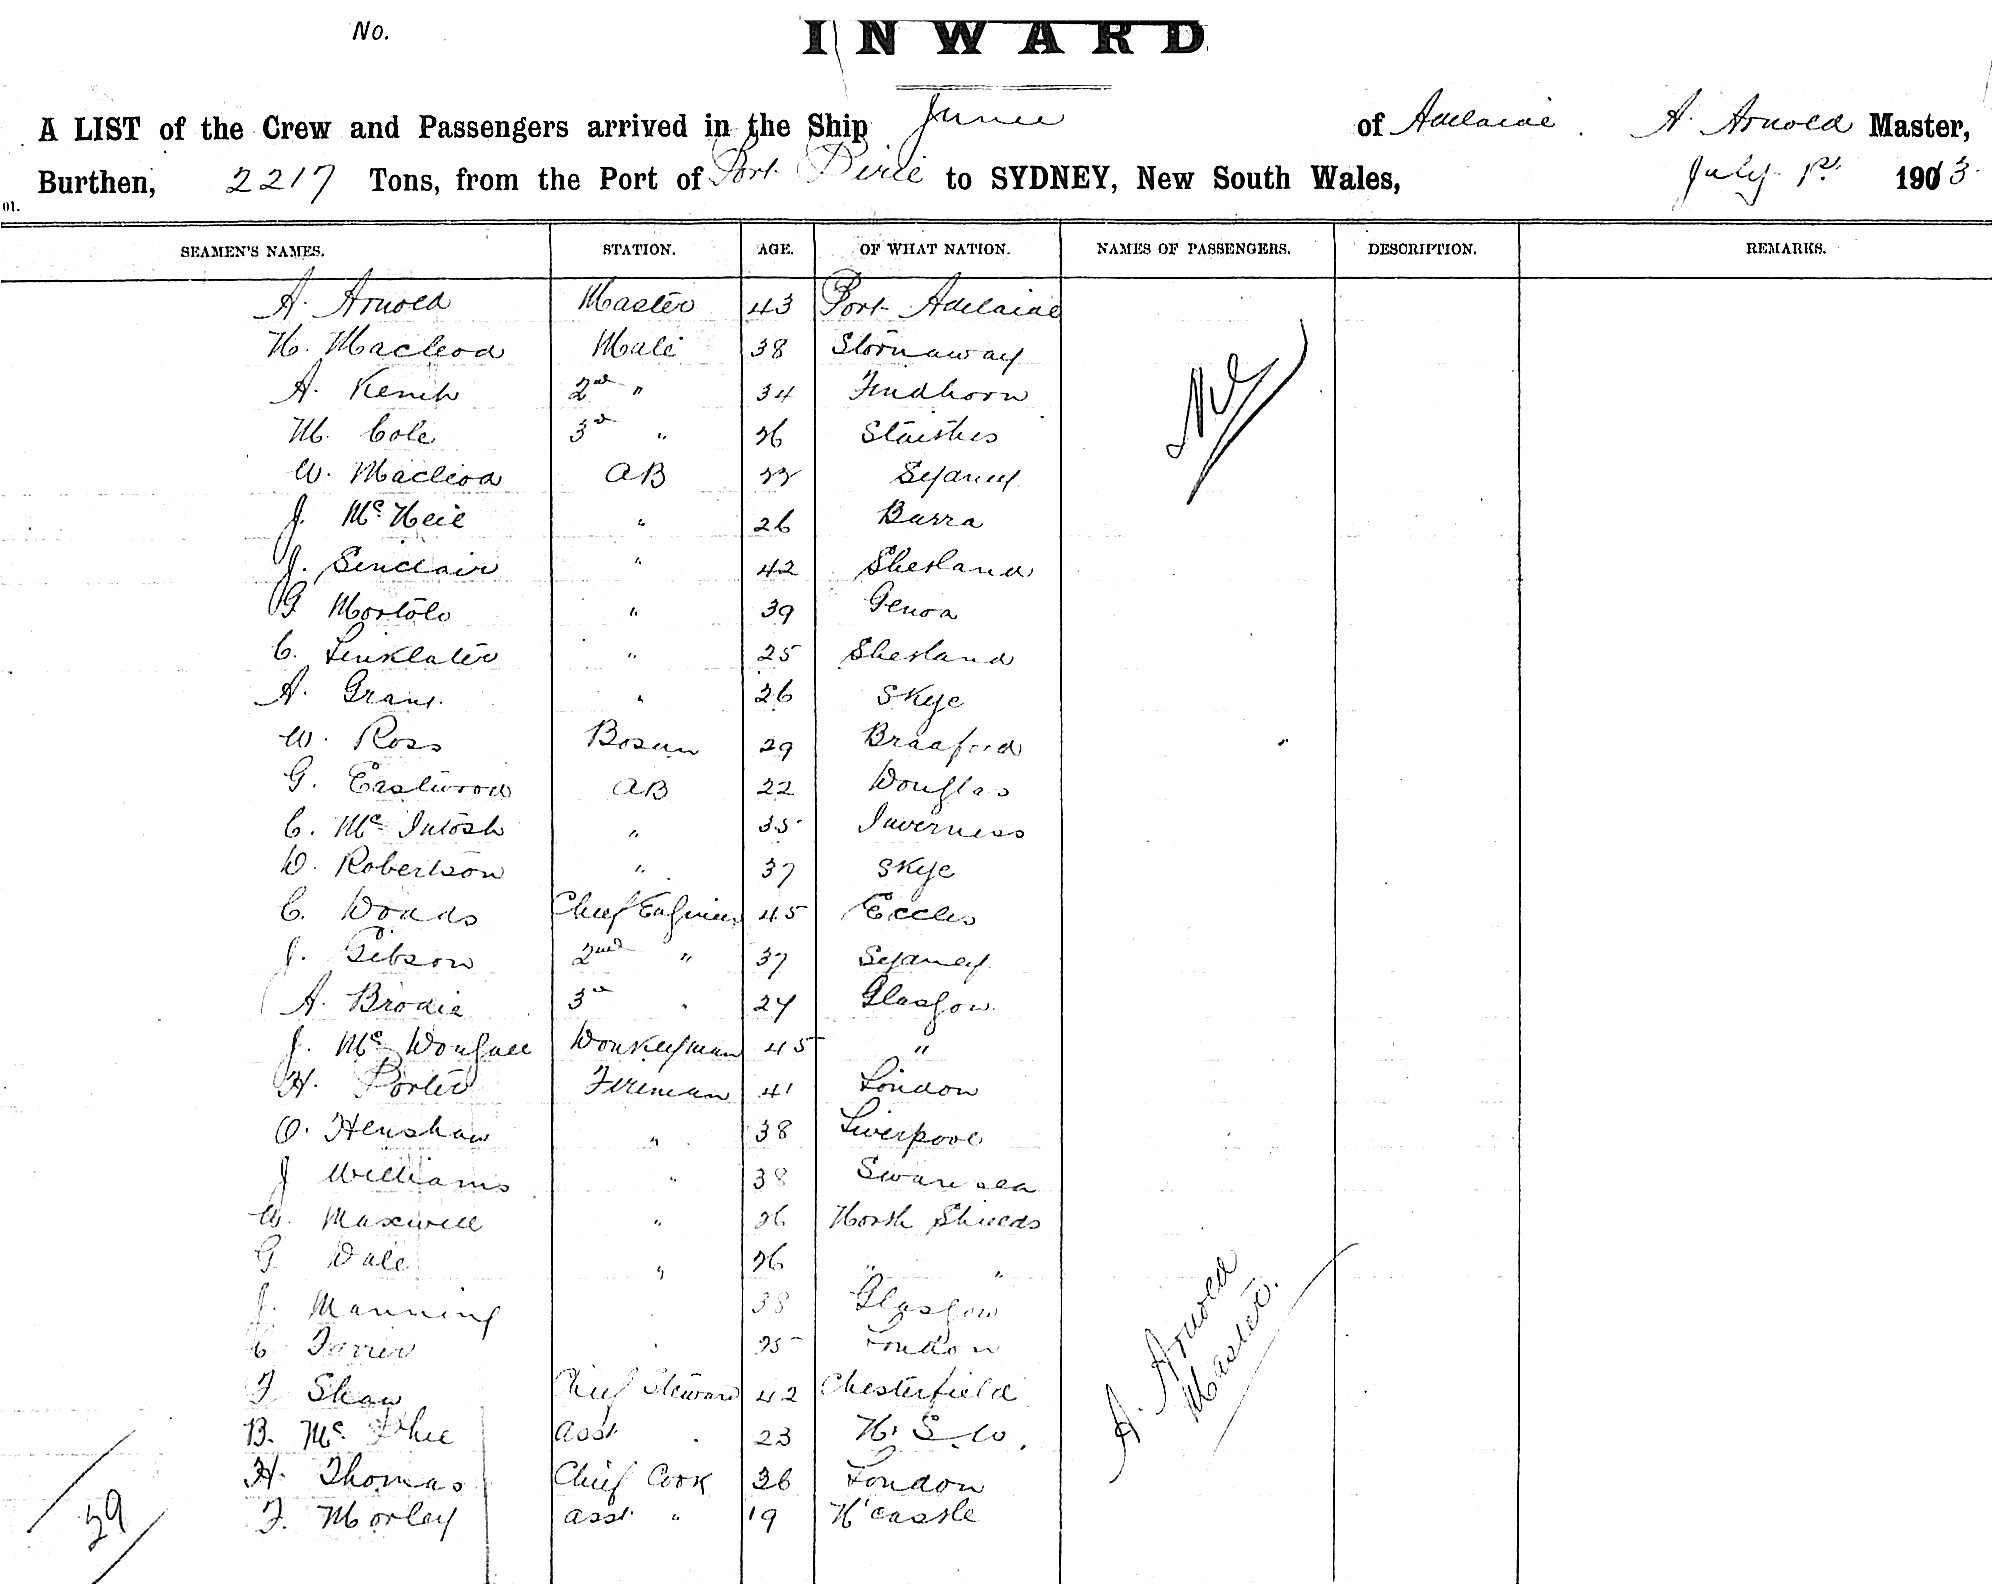 No.
INWARD
A LIST of the Crew and Passengers arrived in the Ship Junee of Adelaide A. Arnold Master,
Burthen, 2217 Tons, from the Port of Port Pirie to SYDNEY, New South Wales, July 1st 1913.
01.
SEAMEN'S NAMES. STATION. AGE. OF WHAT NATION. NAMES OF PASSENGERS. DESCRIPTION. REMARKS.
A. Arnold Master 43 Port Adelaide
N. Macleod Mate 38 Stornaway
A. 2nd " 34 Findhorn
M. Cole 3rd " 26 Staithes
W. Macleod AB Sydney
J. McNeil " 26 Barra
J. Sinclair " 42 Shetland
G Mortolo " 39 Genoa
C. Linklater " 25 Shetland
A. Grant " 26 Skye
W. Ross Bosun 29 Bradford
G. Eastwood AB 22 Douglas
C. McIntosh " 35 Inverness
D. Robertson " 37 Skye
C. Woods Chief Engineer 45 Eccles
J. Gibson 2nd " 37 Sydney
A. Brodie 3rd " 24 Glasgow
J. McDougall Donkeyman 45 "
H. Porter Fireman 41 London
O. Henshaw " 38 Liverpool
J Williams " 38 Swansea
W. Maxwell " 26 North Shields
G. Dale " 26 " "
J. Manning 38 Glasgow
C Farrer " 25 London
F Shaw Chief Steward 42 Chesterfield
B. McPhee Asst " 23 N.S.W.
H. Thomas Chief Cook 36 London
F. Morley Asst " 19 N'castle
Nil
A. Arnold
Master.
29